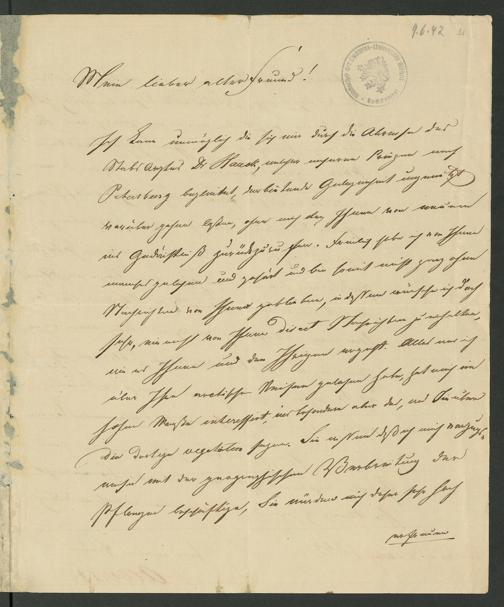 9.6.42
Mein lieber alter Freund!
Ich kann unmöglich die sich mir durch die Abreise des
Stabs Arztes Dr Hauck, welcher unseren Prinzen nach
Petersburg begleitet, darbietende Gelegenheit ungenützt
vorüber gehen lassen, ohne mich bey Ihnen von neuem
ins Gedächtniß zurückzurufen. habe ich von Ihnen
manches gelesen und gehört und bin somit nicht ganz ohne
Nachrichten von Ihnen geblieben, indessen wünsche ich doch
sehr, einmal von Ihnen direct Nachrichten zu erhalten,
wie es Ihnen und den Ihrigen ergeht. Alles was ich
über Ihre Reisen gelesen habe, hat mich im
hohen Maaße interessirt, ins besondere aber das, was Sie über
die dortige Vegetation sagen. Sie wissen daß ich mich vorzugs-
weise mit der geographischen Verbreitung der
Pflanzen beschäftige, Sie würden mich daher sehr hoch